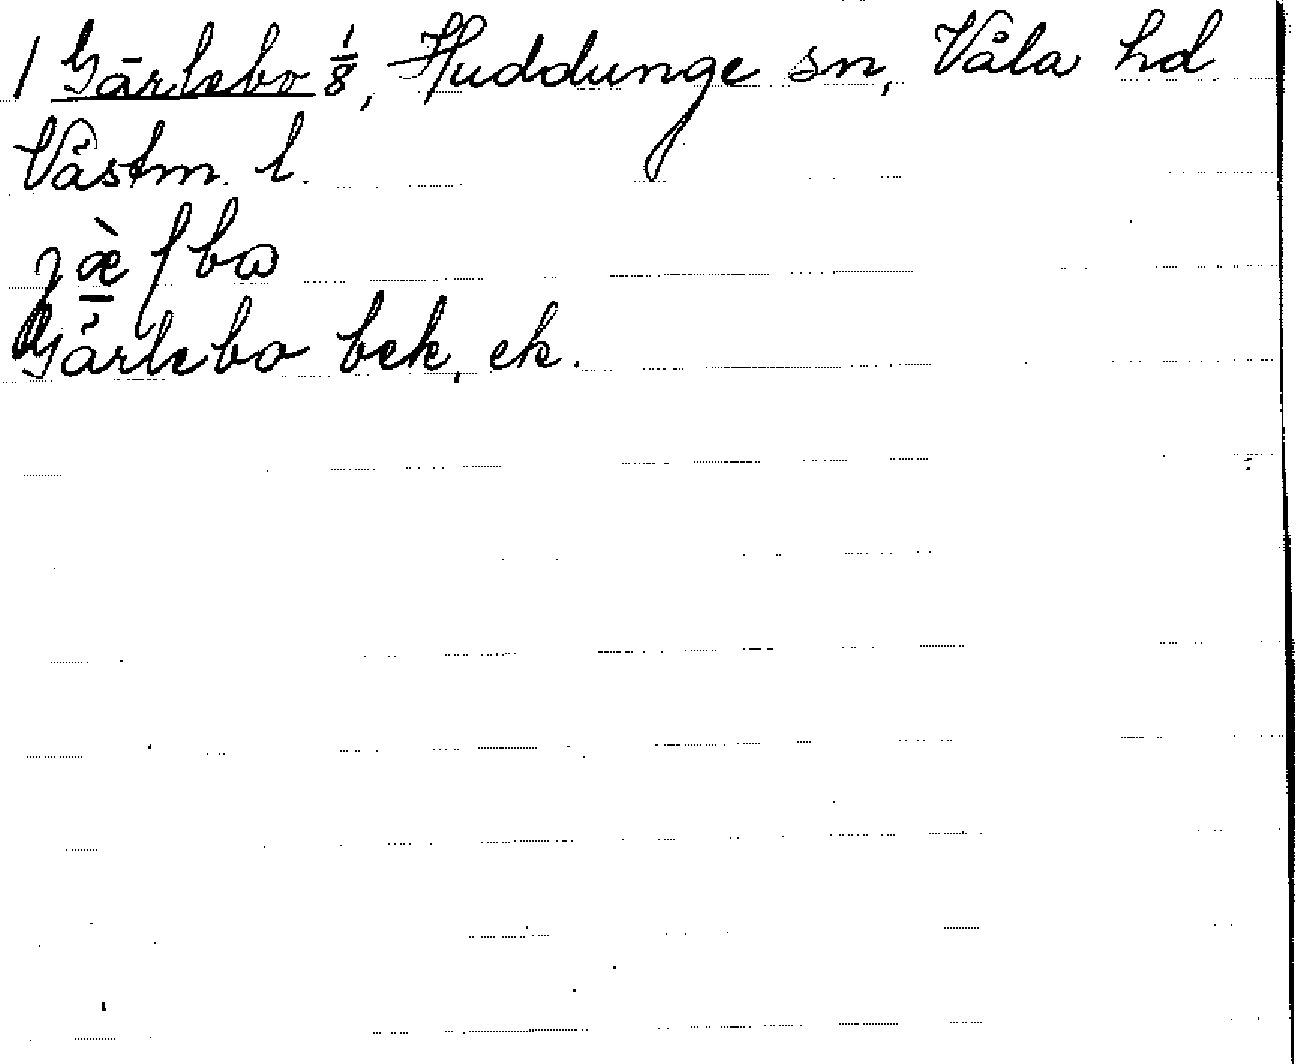 1 Gärlebo 1/8, Huddunge sn, Våla hd
Västm. l.
jæ̀ ſbɷ
Gärlebo bek, ek.